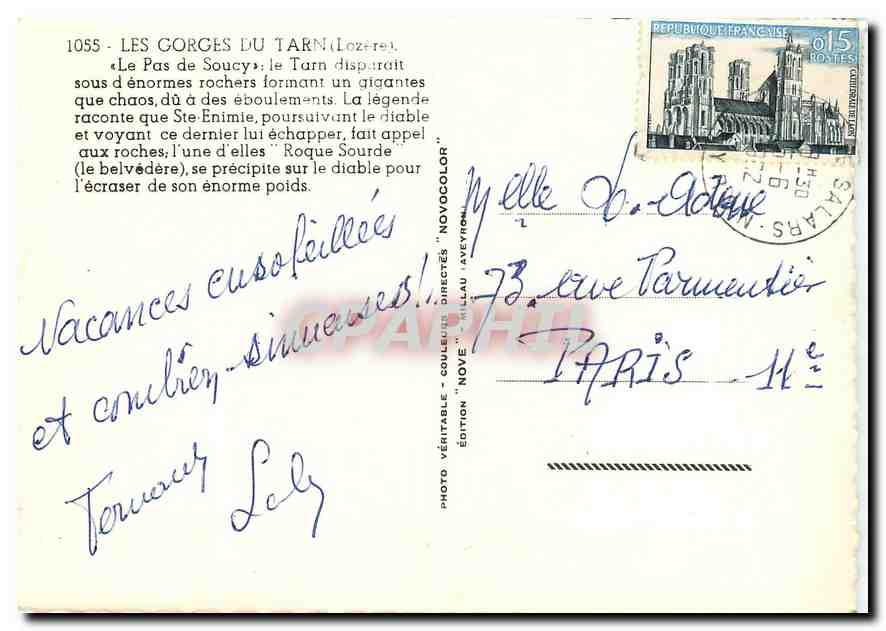 1055 - LES GORGES DU TARN (Lozère).
«Le Pas de Soucy»: le Tarn disparait
sous d énormes rochers formant un gigantes
que chaos, dû à des éboulements. La légende
raconte que Ste-Enimie, poursuivant le diable
et voyant ce dernier lui échapper, fait appel
aux roches; l'une d'elles " Roque Sourde "
(le belvédère), se précipite sur le diable pour
l'écraser de son énorme poids.
Vacances ensoleillées
et combien sinueuses!!
Fernand
PHOTO VÉRITABLE - COULEURS DIRECTES "NOVOCOLOR"
ÉDITION "NOVE" MILLAU (AVEYRON)
RÉPUBLIQUE FRANÇAISE
0,15
POSTES
CATHÉDRALE DE LAON
SALARS
Melle
73. rue Parmentier
PARIS 11e
CPARHIL